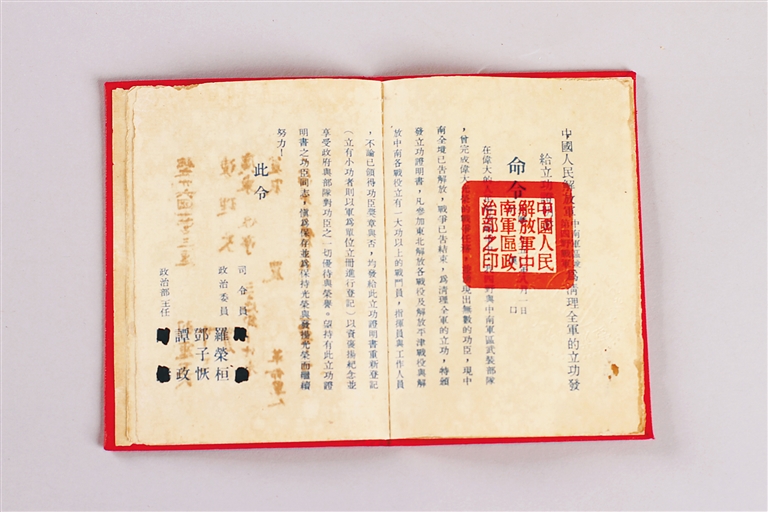 中國人民解放軍
中南軍區
為清理全軍的立功發
給立功
命令
月一日
在偉大的人
與中南軍區武裝部隊
，曾完成偉大
現出無數的功臣，現中
南全境已告解放，戰爭已告結束，為清理全軍的立功，特頒
發立功證明書，凡參加東北解放各戰役及解放平津戰役與解
放中南各戰役立有一大功以上的戰鬥員，指揮員與工作人員
，不論已領得功臣獎章與否，均發給此立功證明書重新登記
（立有小功者則以軍為單位立冊進行登記）以資褒揚紀念並
享受政府與部隊對功臣之一切優待與榮譽。望持有此立功證
明書之功臣同志，慎為保存並為保持光榮與發揚光榮而繼續
努力！
此令
司令員
政治委員 羅榮桓
鄧子恢
政治部主任 譚政
中國人民
解放軍中
南軍區政
治部之印